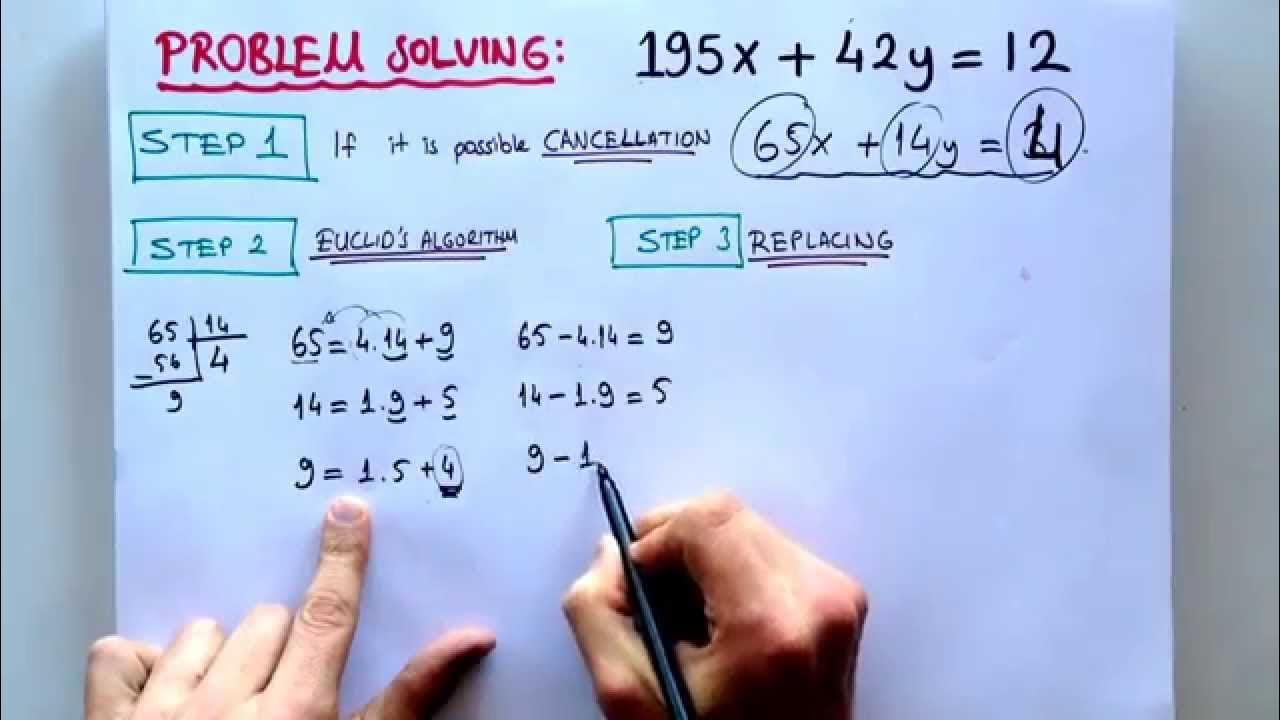 PROBLEM SOLVING: 195x + 42y = 12
STEP 1 If it is possible CANCELLATION 65x + 14y = 4.
STEP 2 EUCLID'S ALGORITHM STEP 3 REPLACING
65 14
- 56 4
9
65 = 4.14 + 9 65 - 4.14 = 9
14 = 1.9 + 5 14 - 1.9 = 5
9 = 1.5 + 4 9 - 1